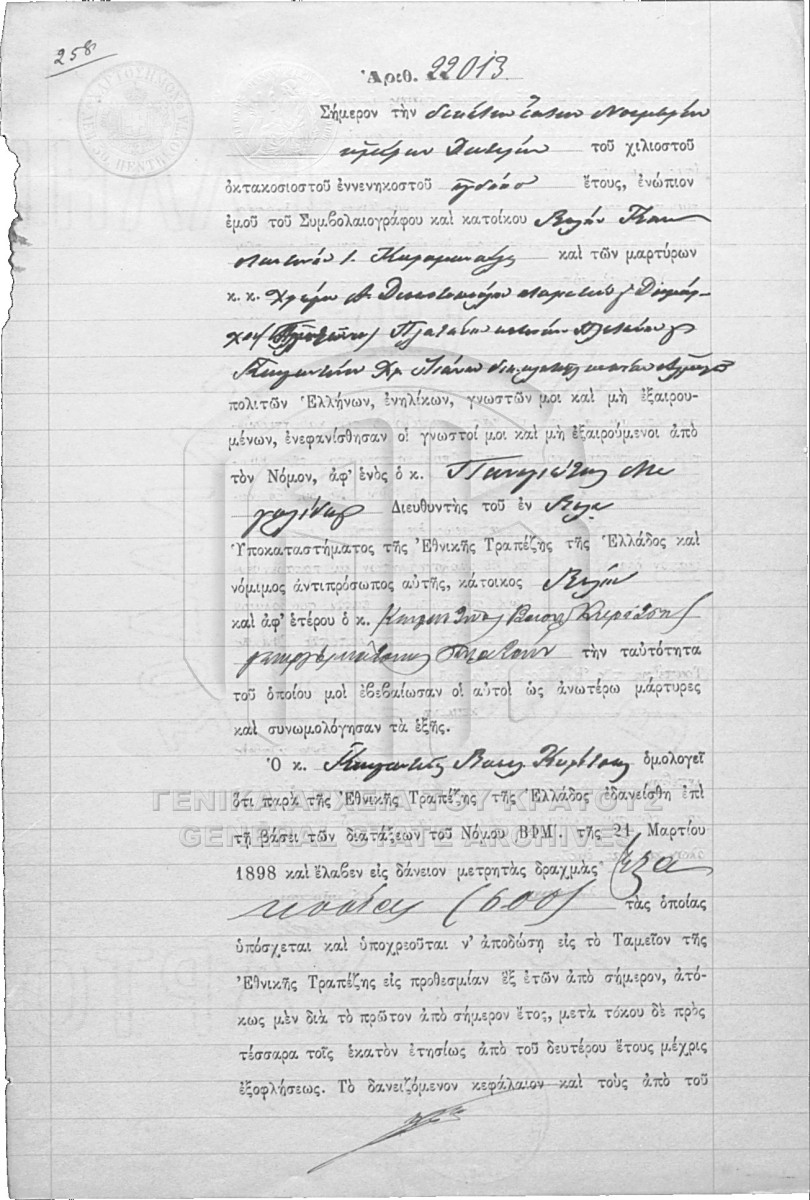 258
Ἀριθ. 22013
Σήμερον τὴν δεκάτην ἕκτην Νοεμβρίου
ἡμέραν Δευτέραν τοῦ χιλιοστοῦ
ὀκτακοσιοστοῦ ἐννενηκοστοῦ ὀγδόου ἔτους, ἐνώπιον
ἐμοῦ τοῦ Συμβολαιογράφου καὶ κατοίκου Βόλου Κων
σταντίνου Ι. καὶ τῶν μαρτύρων
κ. κ.
Πλατάνου
Χρ.
πολιτῶν Ἑλλήνων, ἐνηλίκων, γνωστῶν μοι καὶ μὴ ἐξαιρου-
μένων, ἐνεφανίσθησαν οἱ γνωστοί μοι καὶ μὴ ἐξαιρούμενοι ἀπὸ
τὸν Νόμον, ἀφ' ἑνὸς ὁ κ. Παναγιώτης Με
γαλίδης Διευθυντὴς τοῦ ἐν Βόλῳ
Ὑποκαταστήματος τῆς Ἐθνικῆς Τραπέζης τῆς Ἑλλάδος καὶ
νόμιμος ἀντιπρόσωπος αὐτῆς, κάτοικος Βόλου
καὶ ἀφ' ἑτέρου ὁ κ.
τὴν ταὐτότητα
τοῦ ὁποίου μοὶ ἐβεβαίωσαν οἱ αὐτοὶ ὡς ἀνωτέρω μάρτυρες
καὶ συνωμολόγησαν τὰ ἑξῆς.
Ὁ κ. ὁμολογεῖ
ὅτι παρὰ τῆς Ἐθνικῆς Τραπέζης τῆς Ἑλλάδος ἐδανείσθη ἐπὶ
τῇ βάσει τῶν διατάξεων τοῦ Νόμου ΒΦΜ'. τῆς 21 Μαρτίου
1898 καὶ ἔλαβεν εἰς δάνειον μετρητὰς δραχμὰς ἑξα
κοσίας (600) τὰς ὁποίας
ὑπόσχεται καὶ ὑποχρεοῦται ν' ἀποδώσῃ εἰς τὸ Ταμεῖον τῆς
Ἐθνικῆς Τραπέζης εἰς προθεσμίαν ἓξ ἐτῶν ἀπὸ σήμερον, ἀτό-
κως μὲν διὰ τὸ πρῶτον ἀπὸ σήμερον ἔτος, μετὰ τόκου δὲ πρὸς
τέσσαρα τοῖς ἑκατὸν ἐτησίως ἀπὸ τοῦ δευτέρου ἔτους μέχρις
ἐξοφλήσεως. Τὸ δανειζόμενον κεφάλαιον καὶ τοὺς ἀπὸ τοῦ
ΓΕΝΙΚΑ ΑΡΧΕΙΑ ΤΟΥ ΚΡΑΤΟΥΣ
GENERAL STATE ARCHIVES